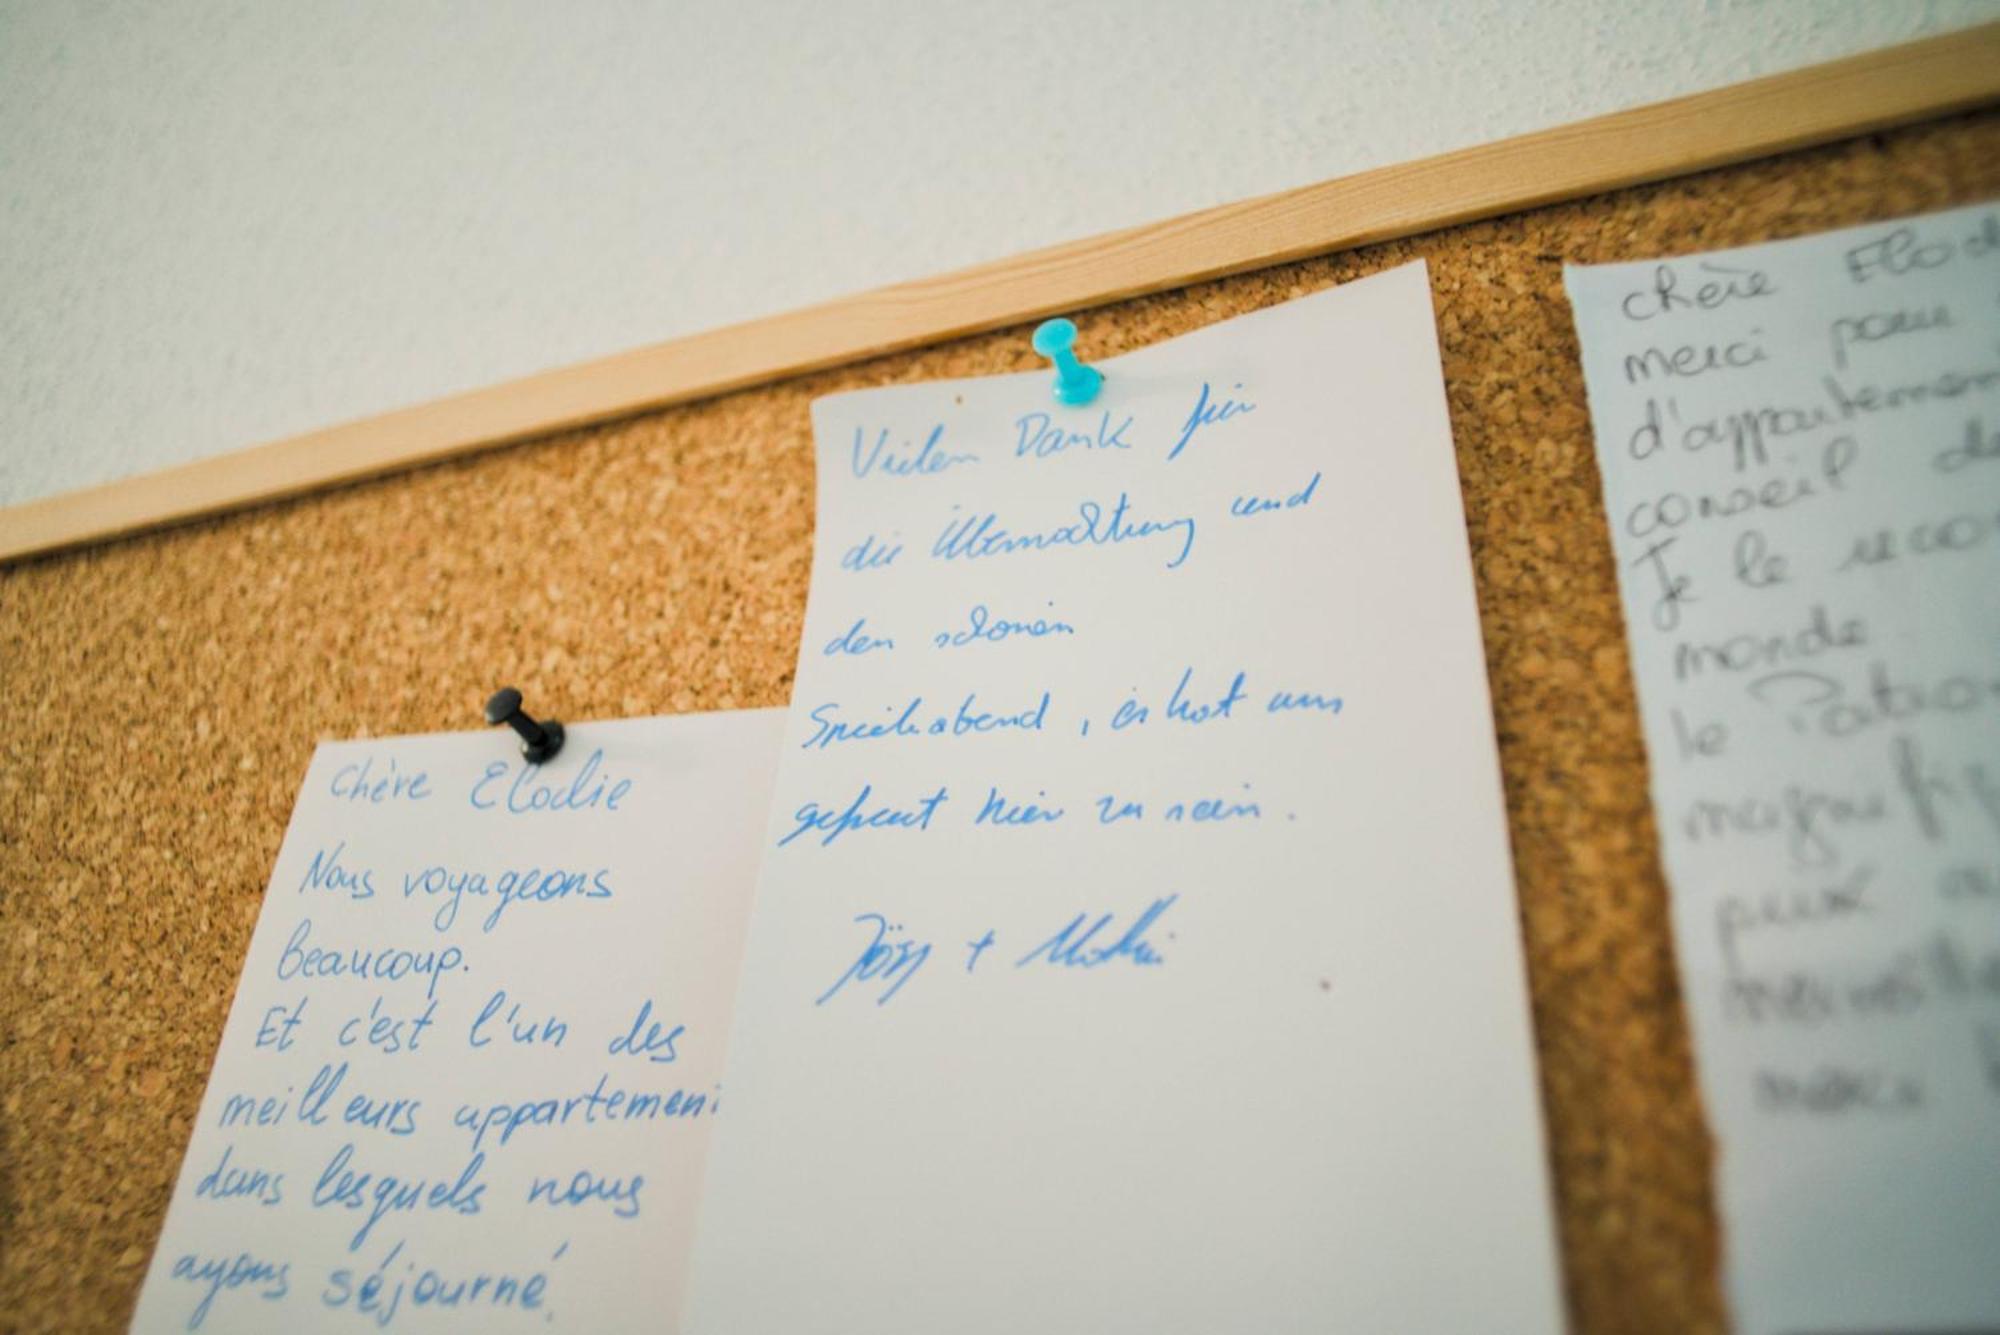 Chère Elodie
Nous voyageons
beaucoup.
Et c'est l'un des
meilleurs appartemen
dans lesquels nous
ayons séjourné.
Vielen Dank für
die Übernachtung und
den schönen
Spieleabend, es hat uns
gefreut hier zu sein.
Jörg +
chère Elod
merci pour
d'appartemen
conseil de
Je le reco
monde
le Patio
magnifi
merci